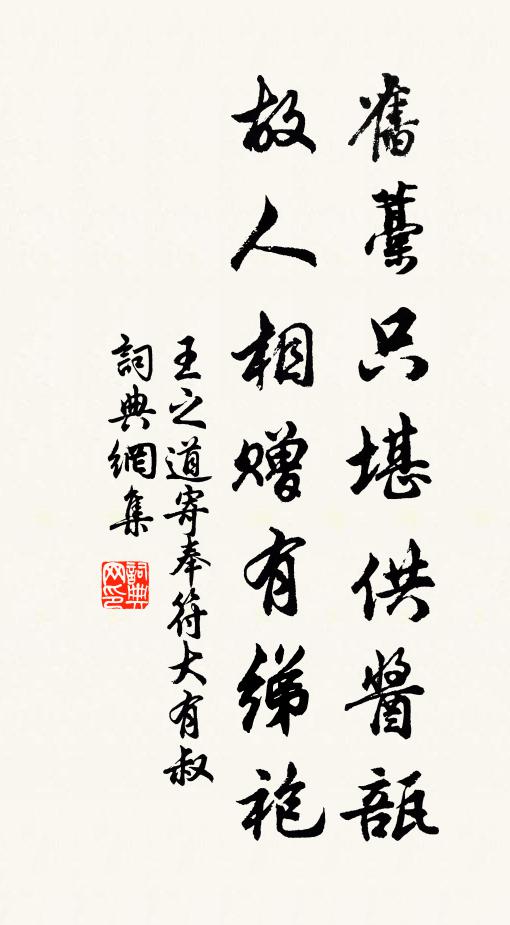 舊藁只堪供醬瓿
故人相贈有綈袍
王之道寄奉符大有叔
詞典網集
詞典网印